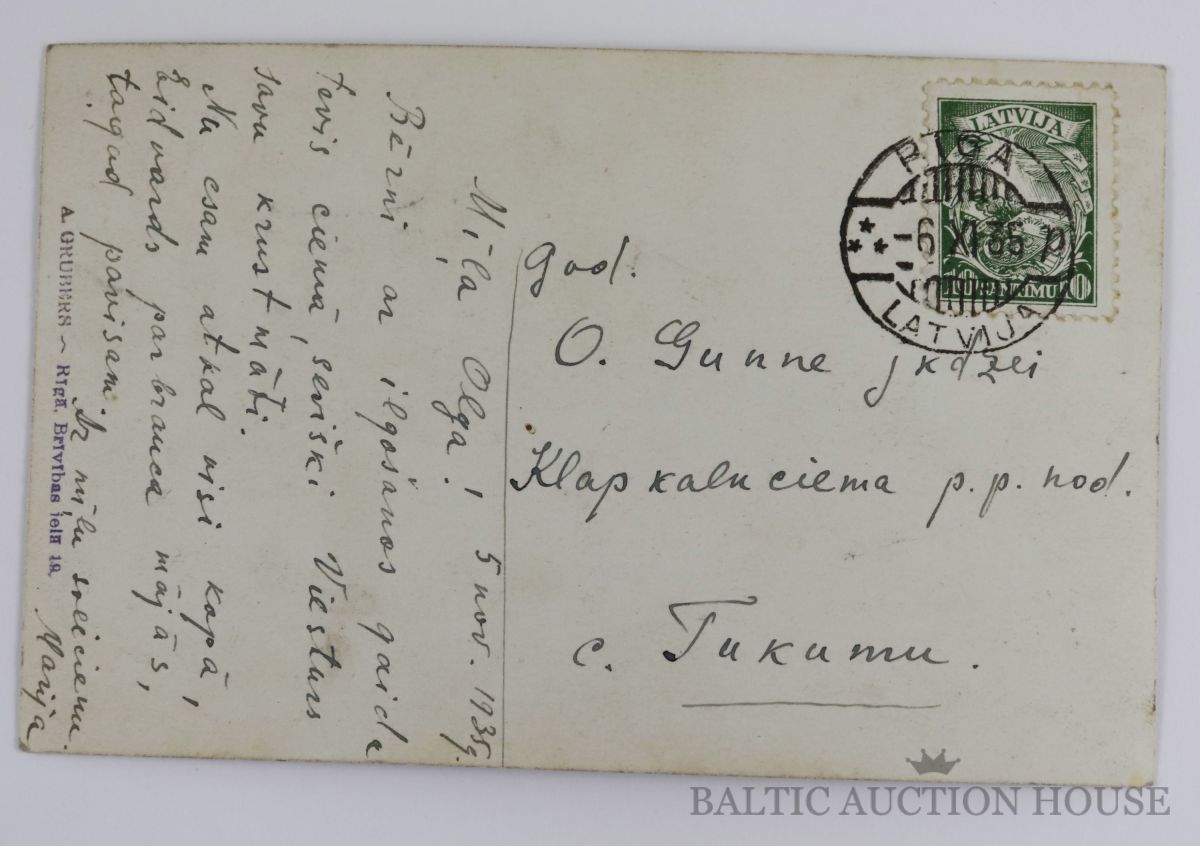 Mīļa Olga! 5 nov. 1935g.
Bērni ar ilgošanos gaida
tevis ciemā, sevišķi Viesturs
savu krustmāti.
Nu esam atkal visi kopā,
Eidvards pārbrauca mājās,
tagad pavisam.
Ar mīļu sveicienu.
Marija
A. GRUBERS ~ Rīgā, Brīvības ielā 19.
LATVIJA
10 SANTIMU 10
RĪGA
-6 XI 35 p
LATVIJA
God.
O. Gunne jkdzei
Klapkalnciema p.p. nod.
c. Tukumu.
BALTIC AUCTION HOUSE